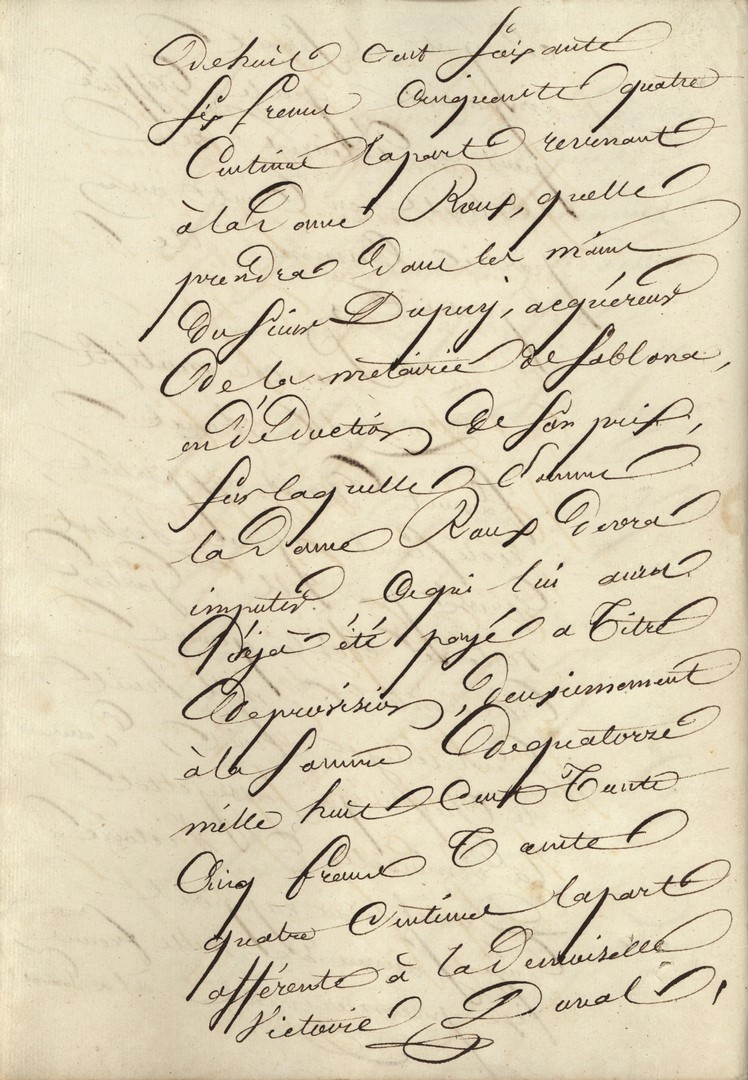 de huit cent soixante
six francs cinquante quatre
Centimes la part revenant
à la Dame Roux, quelle
prendra dans les mains
du sieur Dupuy, acquéreur
de la métairie de Sablona,
en déduction de son prix,
sur laquelle somme
la Dame Roux devra
imputer ce qui lui aura
déjà été payé a titre
de provision, deuxièmement
à la somme de quatorze
mille huit cent Trente
cinq francs Trente
quatre Centimes la part
afférente à la Demoiselle
Victorie Duval,